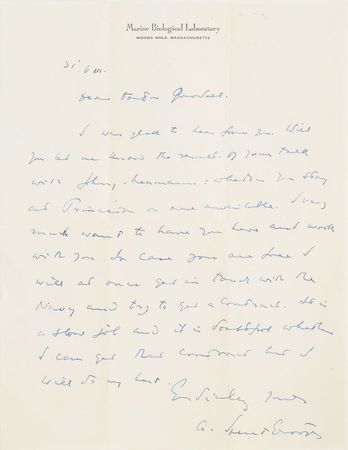 Marine Biological Laboratory
WOODS HOLE, MASSACHUSETTS
Dear Doctor
I was glad to hear from you. Will
you let me know the result of your talk
with Johnny Neumann: whether you stay
at Princeton or are available. I very
much want to have you here and work
with you. In case you are free I
will at once get in touch with the
Navy and try to get a contract. It is
a slow job and it is doubtful whether
I can get that contract but I
will do my best.
Yours
A. Szent-Györgyi